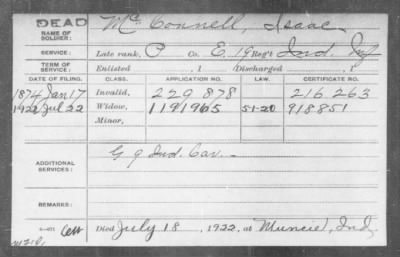 DEAD
NAME OF SOLDIER: McConnell, Isaac
SERVICE: Late rank, P Co. E, 19 Reg't Ind. Inf
TERM OF SERVICE: Enlisted , 1 Discharged , 1
DATE OF FILING. CLASS. APPLICATION NO. LAW. CERTIFICATE NO.
1874 Jan 17 Invalid, 229 878 216 263
1922 Jul 22 Widow, 1191965 51-20 918851
Minor,
ADDITIONAL SERVICES: G 9 Ind. Cav.
REMARKS:
Died July 18, 1922, at Muncie, Ind.